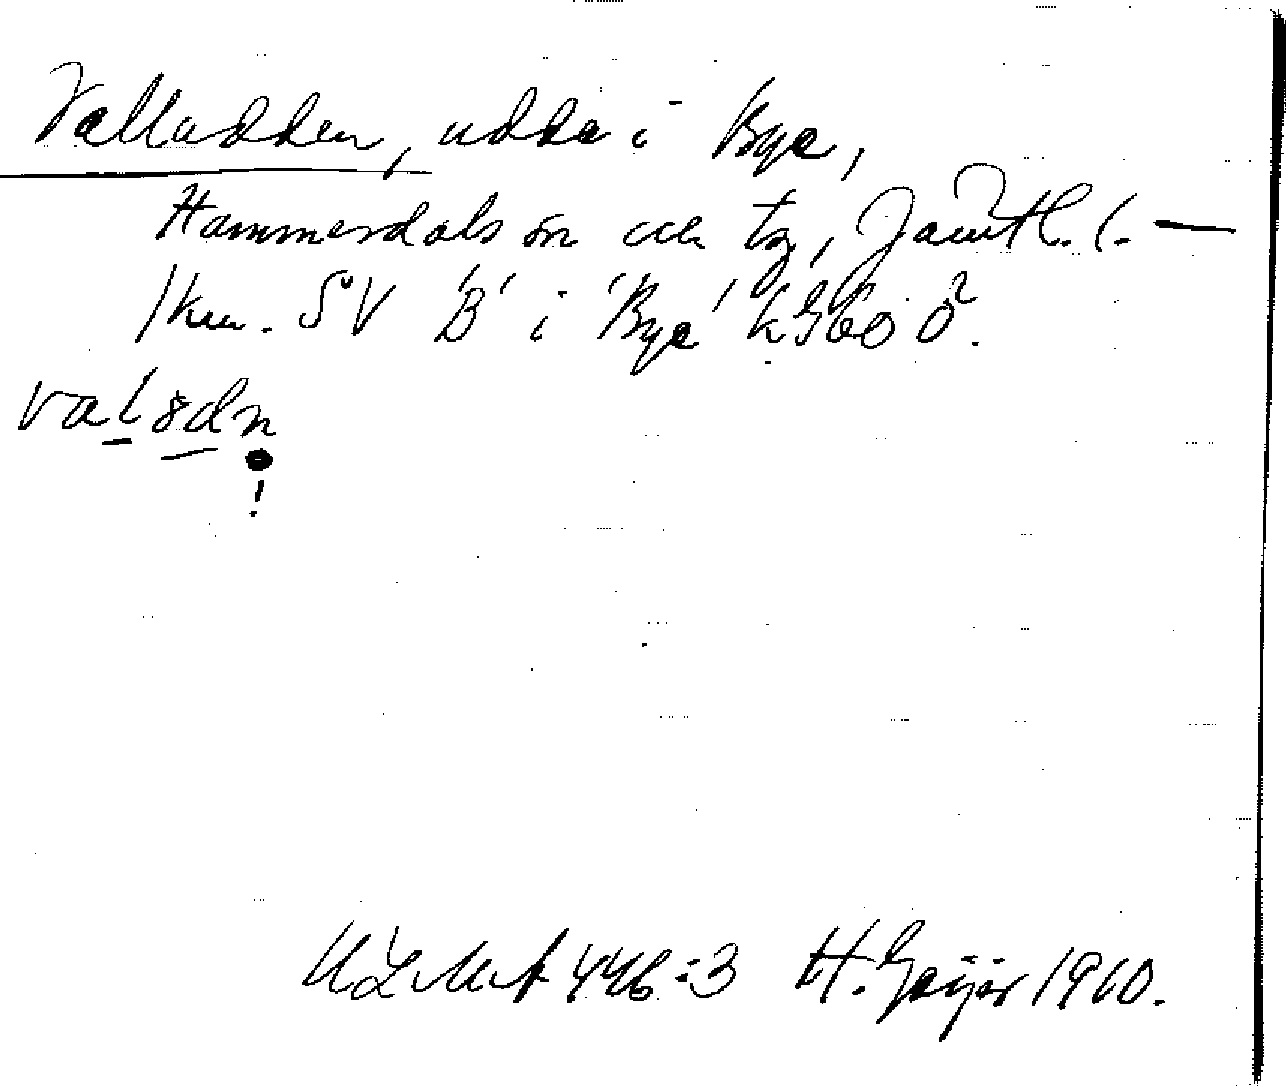 Valludden, udde i Bye,
Hammerdals sn och tg, Jämtl. l. —
1 km. SV 'B' i 'Bye' kgbd Ö.
valsdn
!
ULMA 446:3 H. Geijer 1910.